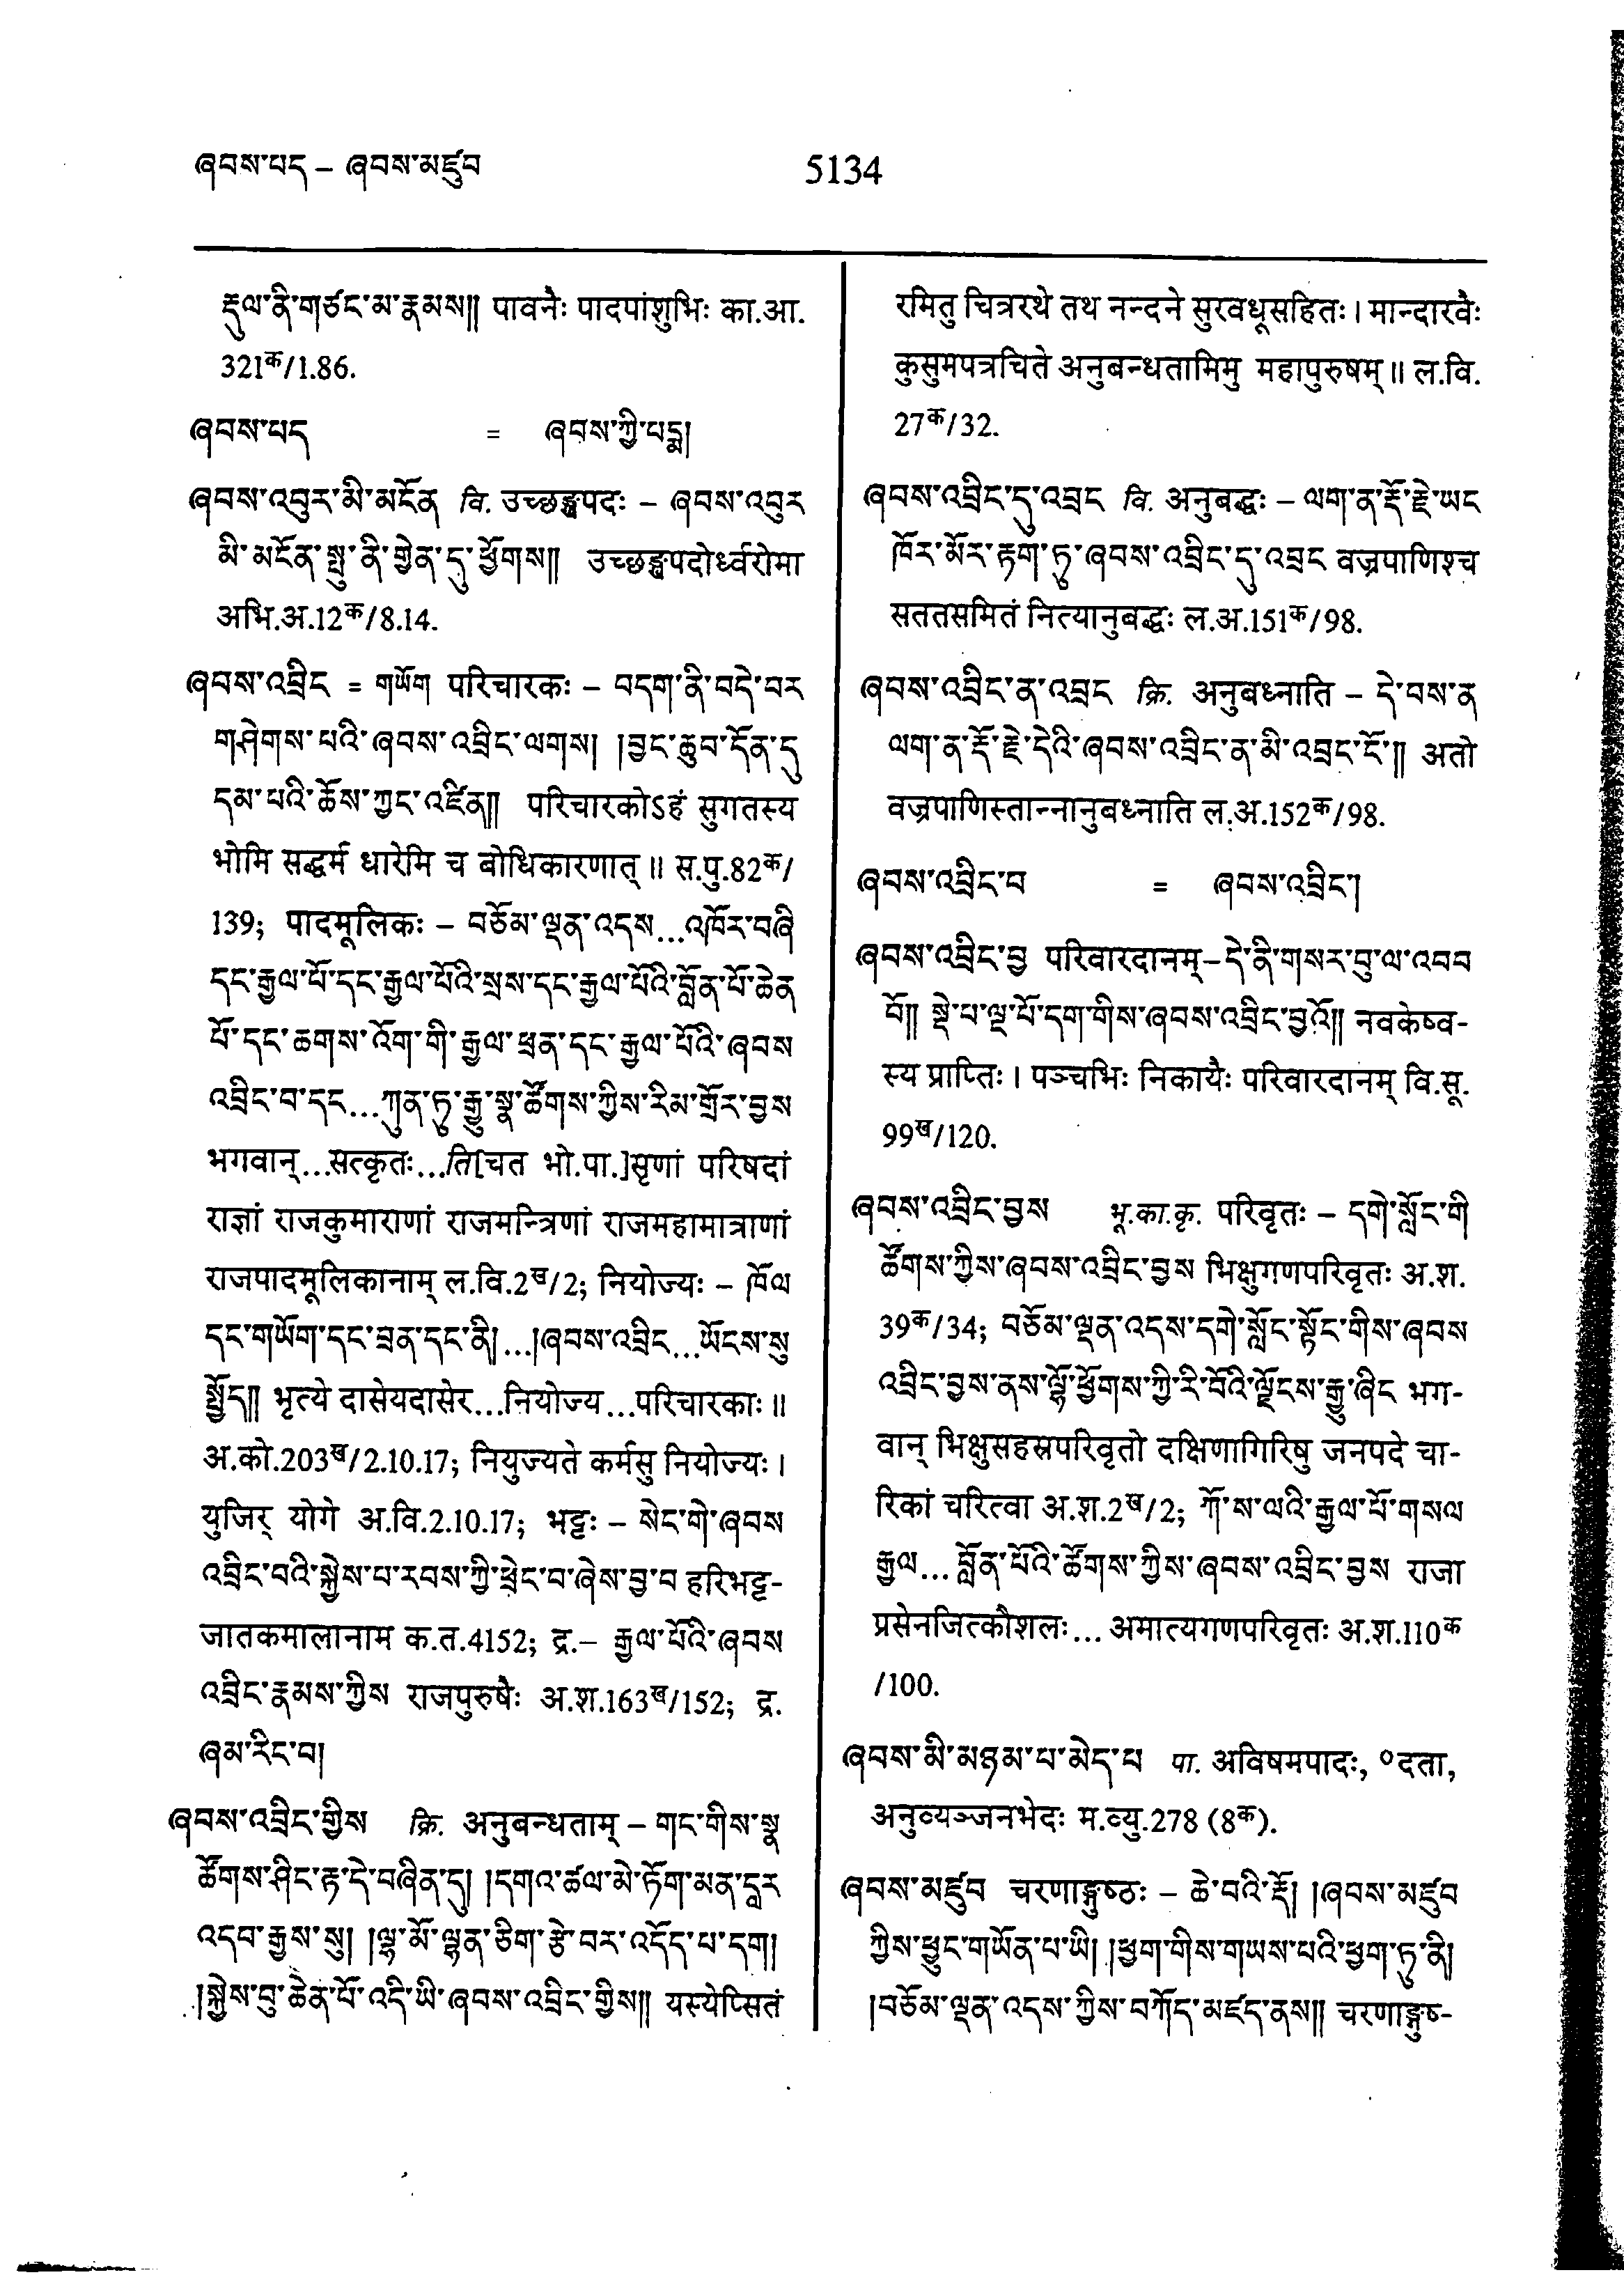 ཞབས་པད – ཞབས་མཛུབ
5134
རྡུལ་ནི་གཙང་མ་རྣམས།། पावनैः पादपांशुभिः का.आ.
321क/1.86.
ཞབས་པད = ཞབས་ཀྱི་པདྨ།
ཞབས་འབུར་མི་མངོན वि. उच्छङ्खपदः – ཞབས་འབུར
མི་མངོན་སྤུ་ནི་གྱེན་དུ་ཕྱོགས།། उच्छङ्खपदोर्ध्वरोमा
अभि.अ.12क/8.14.
ཞབས་འབྲིང = གཡོག परिचारकः – བདག་ནི་བདེ་བར
གཤེགས་པའི་ཞབས་འབྲིང་ལགས། །བྱང་ཆུབ་དོན་དུ
དམ་པའི་ཆོས་ཀྱང་འཛིན།། परिचारकोऽहं सुगतस्य
भोमि सद्धर्म धारेमि च बोधिकारणात् ॥ स.पु.82क/
139; पादमूलिकः – བཅོམ་ལྡན་འདས...འཁོར་བཞི
དང་རྒྱལ་པོ་དང་རྒྱལ་པོའི་སྲས་དང་རྒྱལ་པོའི་བློན་པོ་ཆེན
པོ་དང་ཆགས་འོག་གི་རྒྱལ་ཕྲན་དང་རྒྱལ་པོའི་ཞབས
འབྲིང་བ་དང...ཀུན་ཏུ་རྒྱུ་སྣ་ཚོགས་ཀྱིས་རིམ་གྲོར་བྱས
भगवान्...सत्कृतः...ति[चत भो.पा.]सृणां परिषदां
राज्ञां राजकुमाराणां राजमन्त्रिणां राजमहामात्राणां
राजपादमूलिकानाम् ल.वि.2ख/2; नियोज्यः – ཁོལ
དང་གཡོག་དང་བྲན་དང་ནི།...།ཞབས་འབྲིང...ཡོངས་སུ
སྤྱོད།། भृत्ये दासेयदासेर...नियोज्य...परिचारकाः ॥
अ.को.203ख/2.10.17; नियुज्यते कर्मसु नियोज्यः ।
युजिर् योगे अ.वि.2.10.17; भट्टः – སེང་གེ་ཞབས
འབྲིང་བའི་སྐྱེས་པ་རབས་ཀྱི་ཕྲེང་བ་ཞེས་བྱ་བ हरिभट्ट-
जातकमालानाम क.त.4152; द्र.– རྒྱལ་པོའི་ཞབས
འབྲིང་རྣམས་ཀྱིས राजपुरुषैः अ.श.163ख/152; द्र.
ཞམ་རིང་བ།
ཞབས་འབྲིང་གྱིས क्रि. अनुबन्धताम् – གང་གིས་སྣ
ཚོགས་ཤིང་རྟ་དེ་བཞིན་དུ། །དགའ་ཚལ་མེ་ཏོག་མན་དཱར
འདབ་རྒྱས་སུ། །ལྷ་མོ་ལྷན་ཅིག་རྩེ་བར་འདོད་པ་དག།
།སྐྱེས་བུ་ཆེན་པོ་འདི་ཡི་ཞབས་འབྲིང་གྱིས།། यस्येप्सितं
रमितु चित्ररथे तथ नन्दने सुरवधूसहितः । मान्दारवैः
कुसुमपत्रचिते अनुबन्धतामिमु महापुरुषम् ॥ ल.वि.
27क/32.
ཞབས་འབྲིང་དུ་འབྲང वि. अनुबद्धः – ལག་ན་རྡོ་རྗེ་ཡང
ཁོར་མོར་རྟག་ཏུ་ཞབས་འབྲིང་དུ་འབྲང वज्रपाणिश्च
सततसमितं नित्यानुबद्धः ल.अ.151क/98.
ཞབས་འབྲིང་ན་འབྲང क्रि. अनुबध्नाति – དེ་བས་ན
ལག་ན་རྡོ་རྗེ་དེའི་ཞབས་འབྲིང་ན་མི་འབྲང་ངོ་།། अतो
वज्रपाणिस्तान्नानुबध्नाति ल.अ.152क/98.
ཞབས་འབྲིང་བ = ཞབས་འབྲིང་།
ཞབས་འབྲིང་བྱ परिवारदानम्– དེ་ནི་གསར་བུ་ལ་འབབ
བོ།། སྡེ་པ་ལྔ་པོ་དག་གིས་ཞབས་འབྲིང་བྱའོ།། नवकेष्व-
स्य प्राप्तिः । पञ्चभिः निकायैः परिवारदानम् वि.सू.
99ख/120.
ཞབས་འབྲིང་བྱས भू.का.कृ. परिवृतः – དགེ་སློང་གི
ཚོགས་ཀྱིས་ཞབས་འབྲིང་བྱས भिक्षुगणपरिवृतः अ.श.
39क/34; བཅོམ་ལྡན་འདས་དགེ་སློང་སྟོང་གིས་ཞབས
འབྲིང་བྱས་ནས་ལྷོ་ཕྱོགས་ཀྱི་རི་བོའི་ལྗོངས་རྒྱུ་ཞིང भग-
वान् भिक्षुसहस्रपरिवृतो दक्षिणागिरिषु जनपदे चा-
रिकां चरित्वा अ.श.2ख/2; ཀོ་ས་ལའི་རྒྱལ་པོ་གསལ
རྒྱལ... བློན་པོའི་ཚོགས་ཀྱིས་ཞབས་འབྲིང་བྱས राजा
प्रसेनजित्कौशलः... अमात्यगणपरिवृतः अ.श.110क
/100.
ཞབས་མི་མཉམ་པ་མེད་པ पा. अविषमपादः, ०दता,
अनुव्यञ्जनभेदः म.व्यु.278 (8क).
ཞབས་མཛུབ चरणाङ्गुष्ठः – ཆེ་བའི་རྡོ། །ཞབས་མཛུབ
ཀྱིས་ཕྱུང་གཡོན་པ་ཡི། །ཕྱག་གིས་གཡས་པའི་ཕྱག་ཏུ་ནི།
།བཅོམ་ལྡན་འདས་ཀྱིས་བཀོད་མཛད་ནས།། चरणाङ्गुष्ठ-